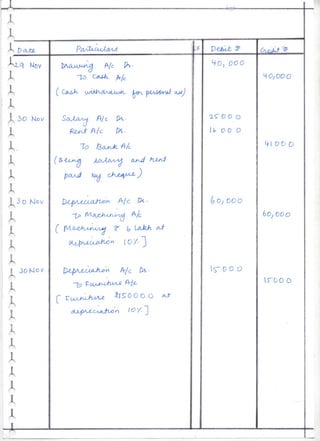 Date Particulars LF Debit ₹ Credit ₹
29 Nov Drawing A/c Dr. 40,000
To Cash A/c 40,000
(Cash withdrawn for personal use)
30 Nov Salary A/c Dr 25000
Rent A/c Dr. 16000
To Bank A/c 41000
(Being salary and rent
paid by cheque)
30 Nov Depreciation A/c Dr. 60,000
To Machinery A/c 60,000
( Machinery ₹ 6 Lakh at
depreciation 10%]
30 Nov Depreciation A/c Dr. 15000
To Furniture A/c 15000
[ Furniture ₹150000 at
depreciation 10%]